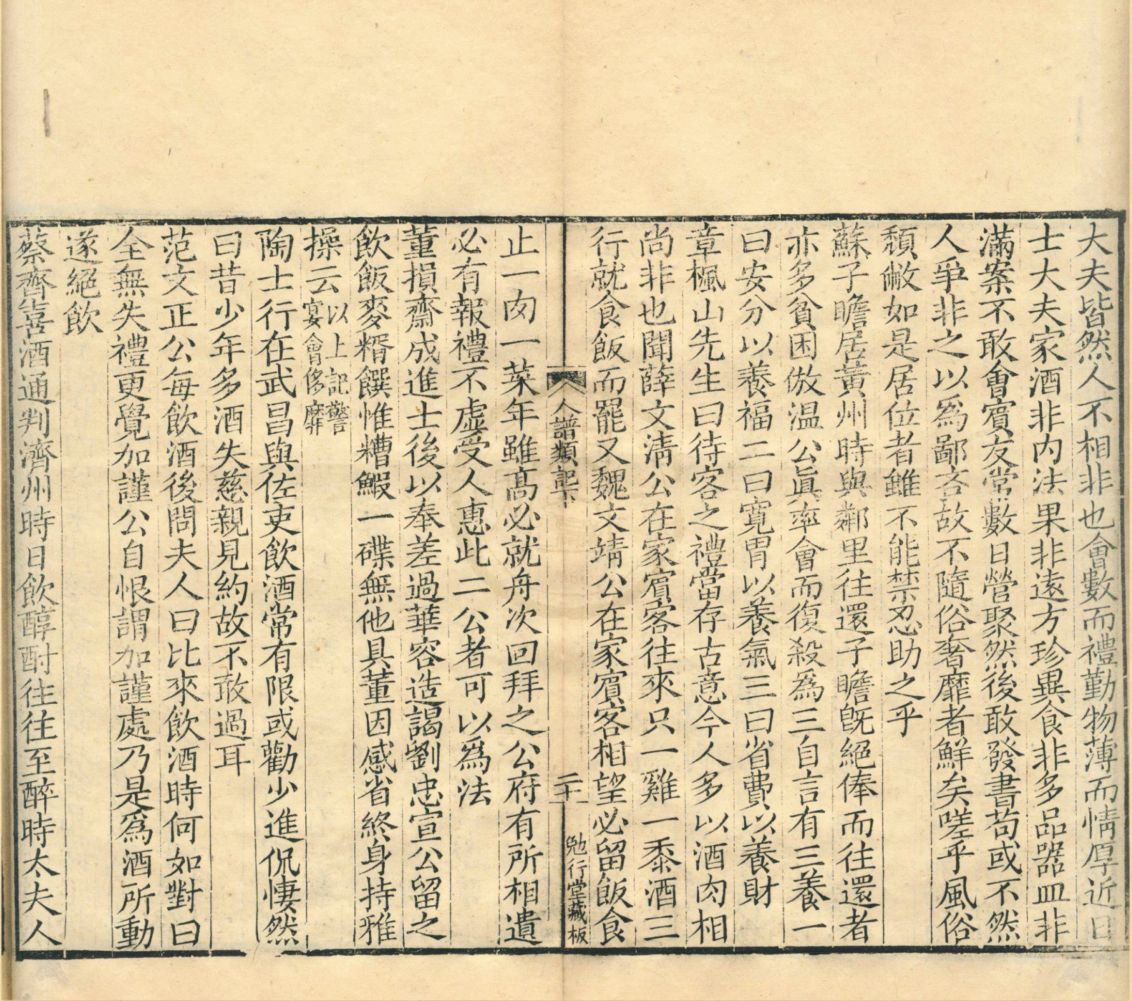 大夫皆然人不相非也會數而禮勤物薄而情厚近日
士大夫家酒非内法果非遠方珍異食非多品器皿非
滿案不敢會賓友常數日營聚然後敢發書苟或不然
人爭非之以爲鄙吝故不隨俗奢靡者鮮矣嗟乎風俗
頽敝如是居位者雖不能禁忍助之乎
蘇子瞻居黃州時與鄰里往還子瞻旣絕俸而往還者
亦多貧困倣温公眞率會而復殺爲三自言有三養一
曰安分以養福二曰寬胃以養氣三曰省費以養財
章楓山先生曰待客之禮當存古意今人多以酒肉相
尚非也聞薛文淸公在家賓客往來只一雞一黍酒三
行就食飯而罷又魏文靖公在家賓客相望必留飯食
人譜類記下
二十一
勉行堂藏板
止一肉一菜年雖高必就舟次回拜之公府有所相遺
必有報禮不虛受人惠此二公者可以爲法
董損齋成進士後以奉差過華容造謁劉忠宣公留之
飲飯麥糈饌惟糟鰕一碟無他具董因感省終身持雅
操云以上記警
宴會侈靡
陶士行在武昌與佐吏飲酒常有限或勸少進侃悽然
曰昔少年多酒失慈親見約故不敢過耳
范文正公每飲酒後問夫人曰比來飲酒時何如對曰
全無失禮更覺加謹公自恨謂加謹處乃是爲酒所動
遂絕飲
蔡齊喜酒通判濟州時日飲醇酎往往至醉時太夫人